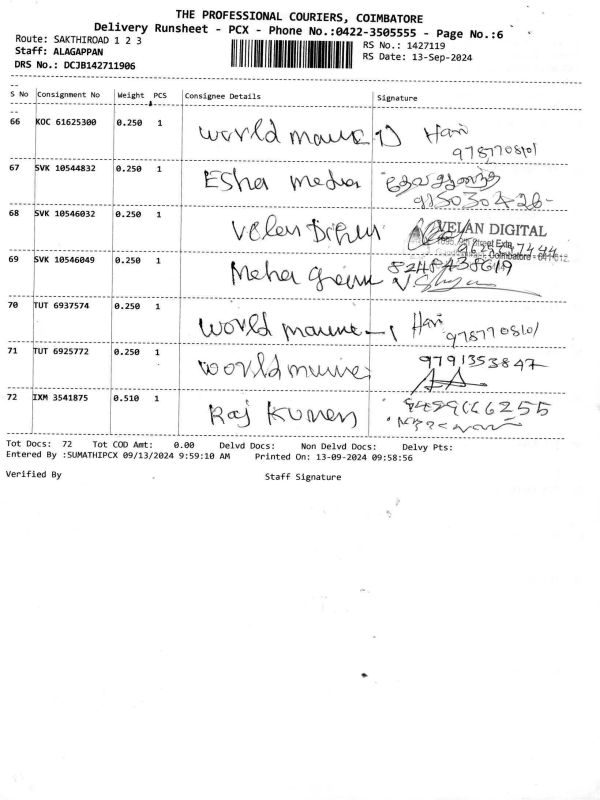 THE PROFESSIONAL COURIERS, COIMBATORE
Delivery Runsheet - PCX - Phone No.:0422-3505555 - Page No.:6
Route: SAKTHIROAD 1 2 3
RS No.: 1427119
Staff: ALAGAPPAN
RS Date: 13-Sep-2024
DRS No.: DCJB142711906
--
S No Consignment No Weight PCS Consignee Details Signature
--
66 KOC 61625300 0.250 1 World Hari
67 SVK 10544832 0.250 1 Esha media
68 SVK 10546032 0.250 1 Velan VELAN DIGITAL
Street Extn,
Coimbatore - 641 012.
69 SVK 10546049 0.250 1 Meha 8248438619
70 TUT 6937574 0.250 1 World Hari
71 TUT 6925772 0.250 1 World 9791353847
72 IXM 3541875 0.510 1 Raj Kumar
Tot Docs: 72 Tot COD Amt: 0.00 Delvd Docs: Non Delvd Docs: Delvy Pts:
Entered By :SUMATHIPCX 09/13/2024 9:59:10 AM Printed On: 13-09-2024 09:58:56
Verified By Staff Signature